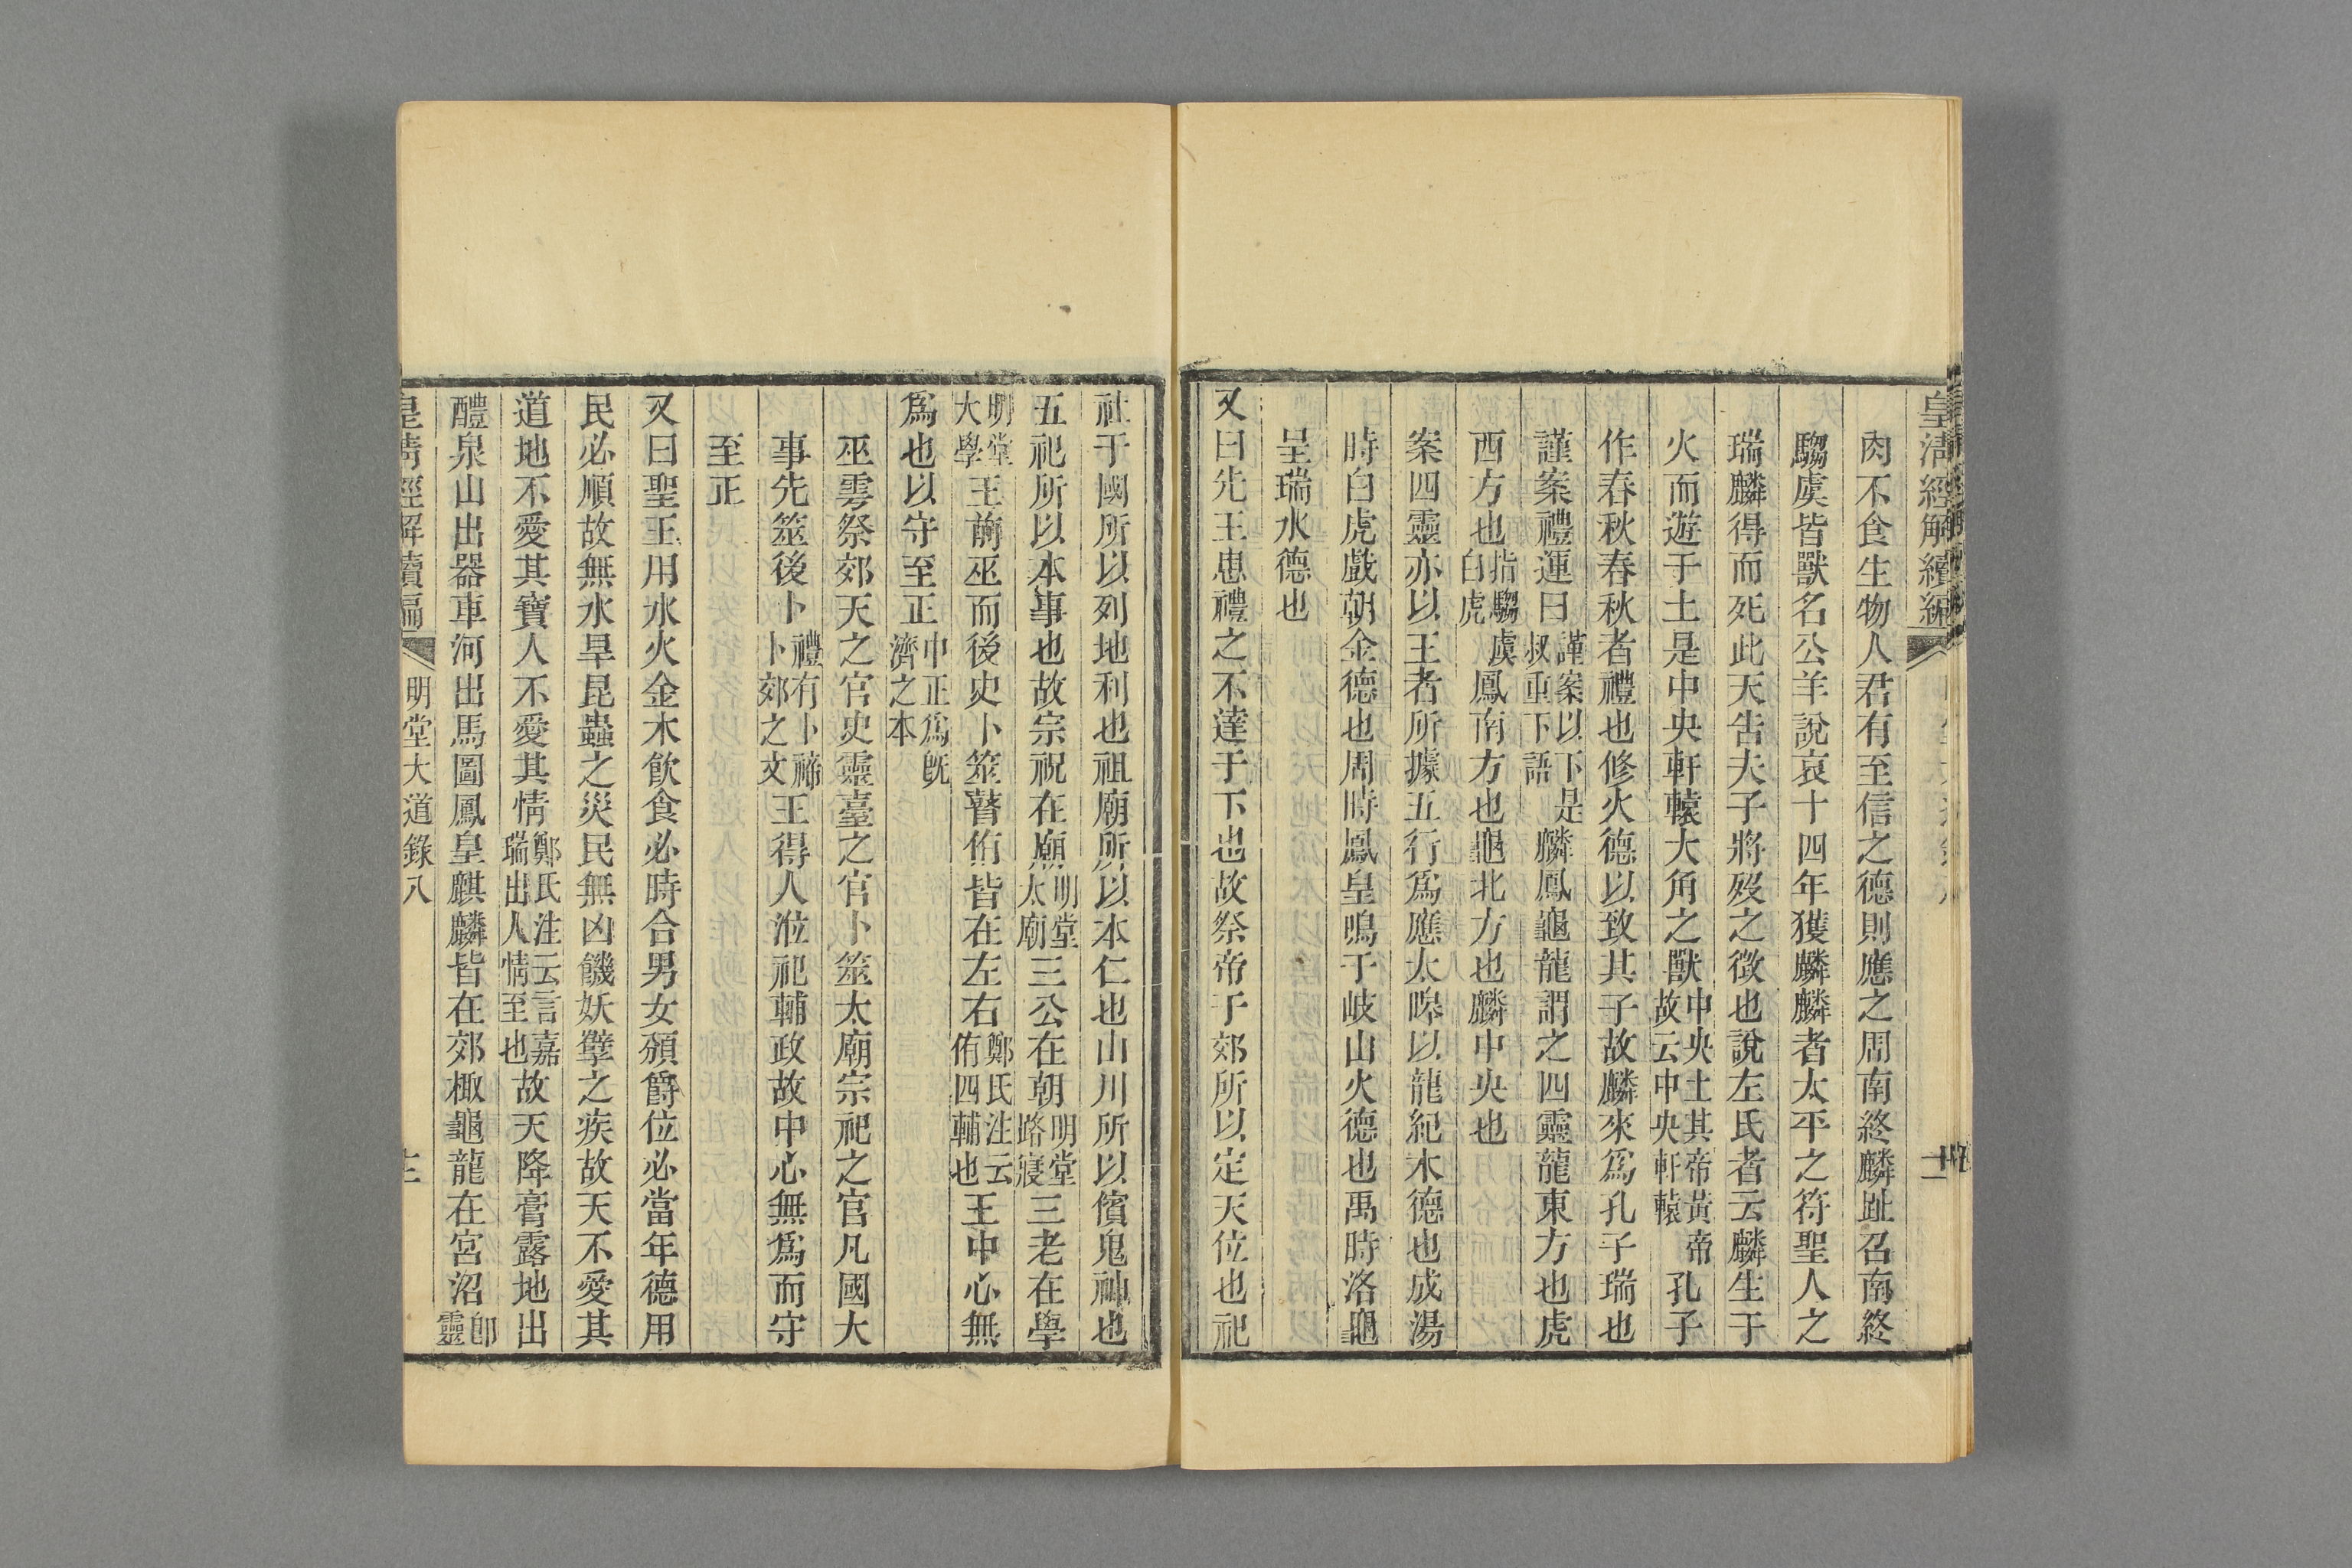 皇清經解續編
肉不食生物人君有至信之德則應之周南終麟趾召南終
騶虞皆獸名公羊說哀十四年獲麟麟者太平之符聖人之
瑞麟得而死此天告夫子將歿之徵也說左氏者云麟生于
火而遊于土是中央軒轅大角之獸中央土其帝黃帝故云中央軒轅孔子
作春秋春秋者禮也修火德以致其子故麟來爲孔子瑞也
謹案禮運曰謹案以下是叔重下語麟鳳龜龍謂之四靈龍東方也虎
西方也指騶虞白虎鳳南方也龜北方也麟中央也
案四靈亦以王者所據五行爲應太皞以龍紀木德也成湯
時白虎戲朝金德也周時鳳皇鳴于岐山火德也禹時洛龜
呈瑞水德也
又曰先王患禮之不達于下也故祭帝于郊所以定天位也祀
社于國所以列地利也祖廟所以本仁也山川所以儐鬼神也
五祀所以本事也故宗祝在廟明堂太廟三公在朝明堂路寢三老在學
明堂大學王前巫而後史卜筮瞽侑皆在左右鄭氏注云侑四輔也王中心無
爲也以守至正中正爲旣濟之本
巫雩祭郊天之官史靈臺之官卜筮太廟宗祀之官凡國大
事先筮後卜禮有卜禘卜郊之文王得人涖祀輔政故中心無爲而守
至正
又曰聖王用水火金木飲食必時合男女頒爵位必當年德用
民必順故無水旱昆蟲之災民無凶饑妖孼之疾故天不愛其
道地不愛其寶人不愛其情鄭氏注云言嘉瑞出人情至也故天降膏露地出
醴泉山出器車河出馬圖鳳皇麒麟皆在郊棷龜龍在宮沼卽靈
皇清經解續編
明堂大道錄八